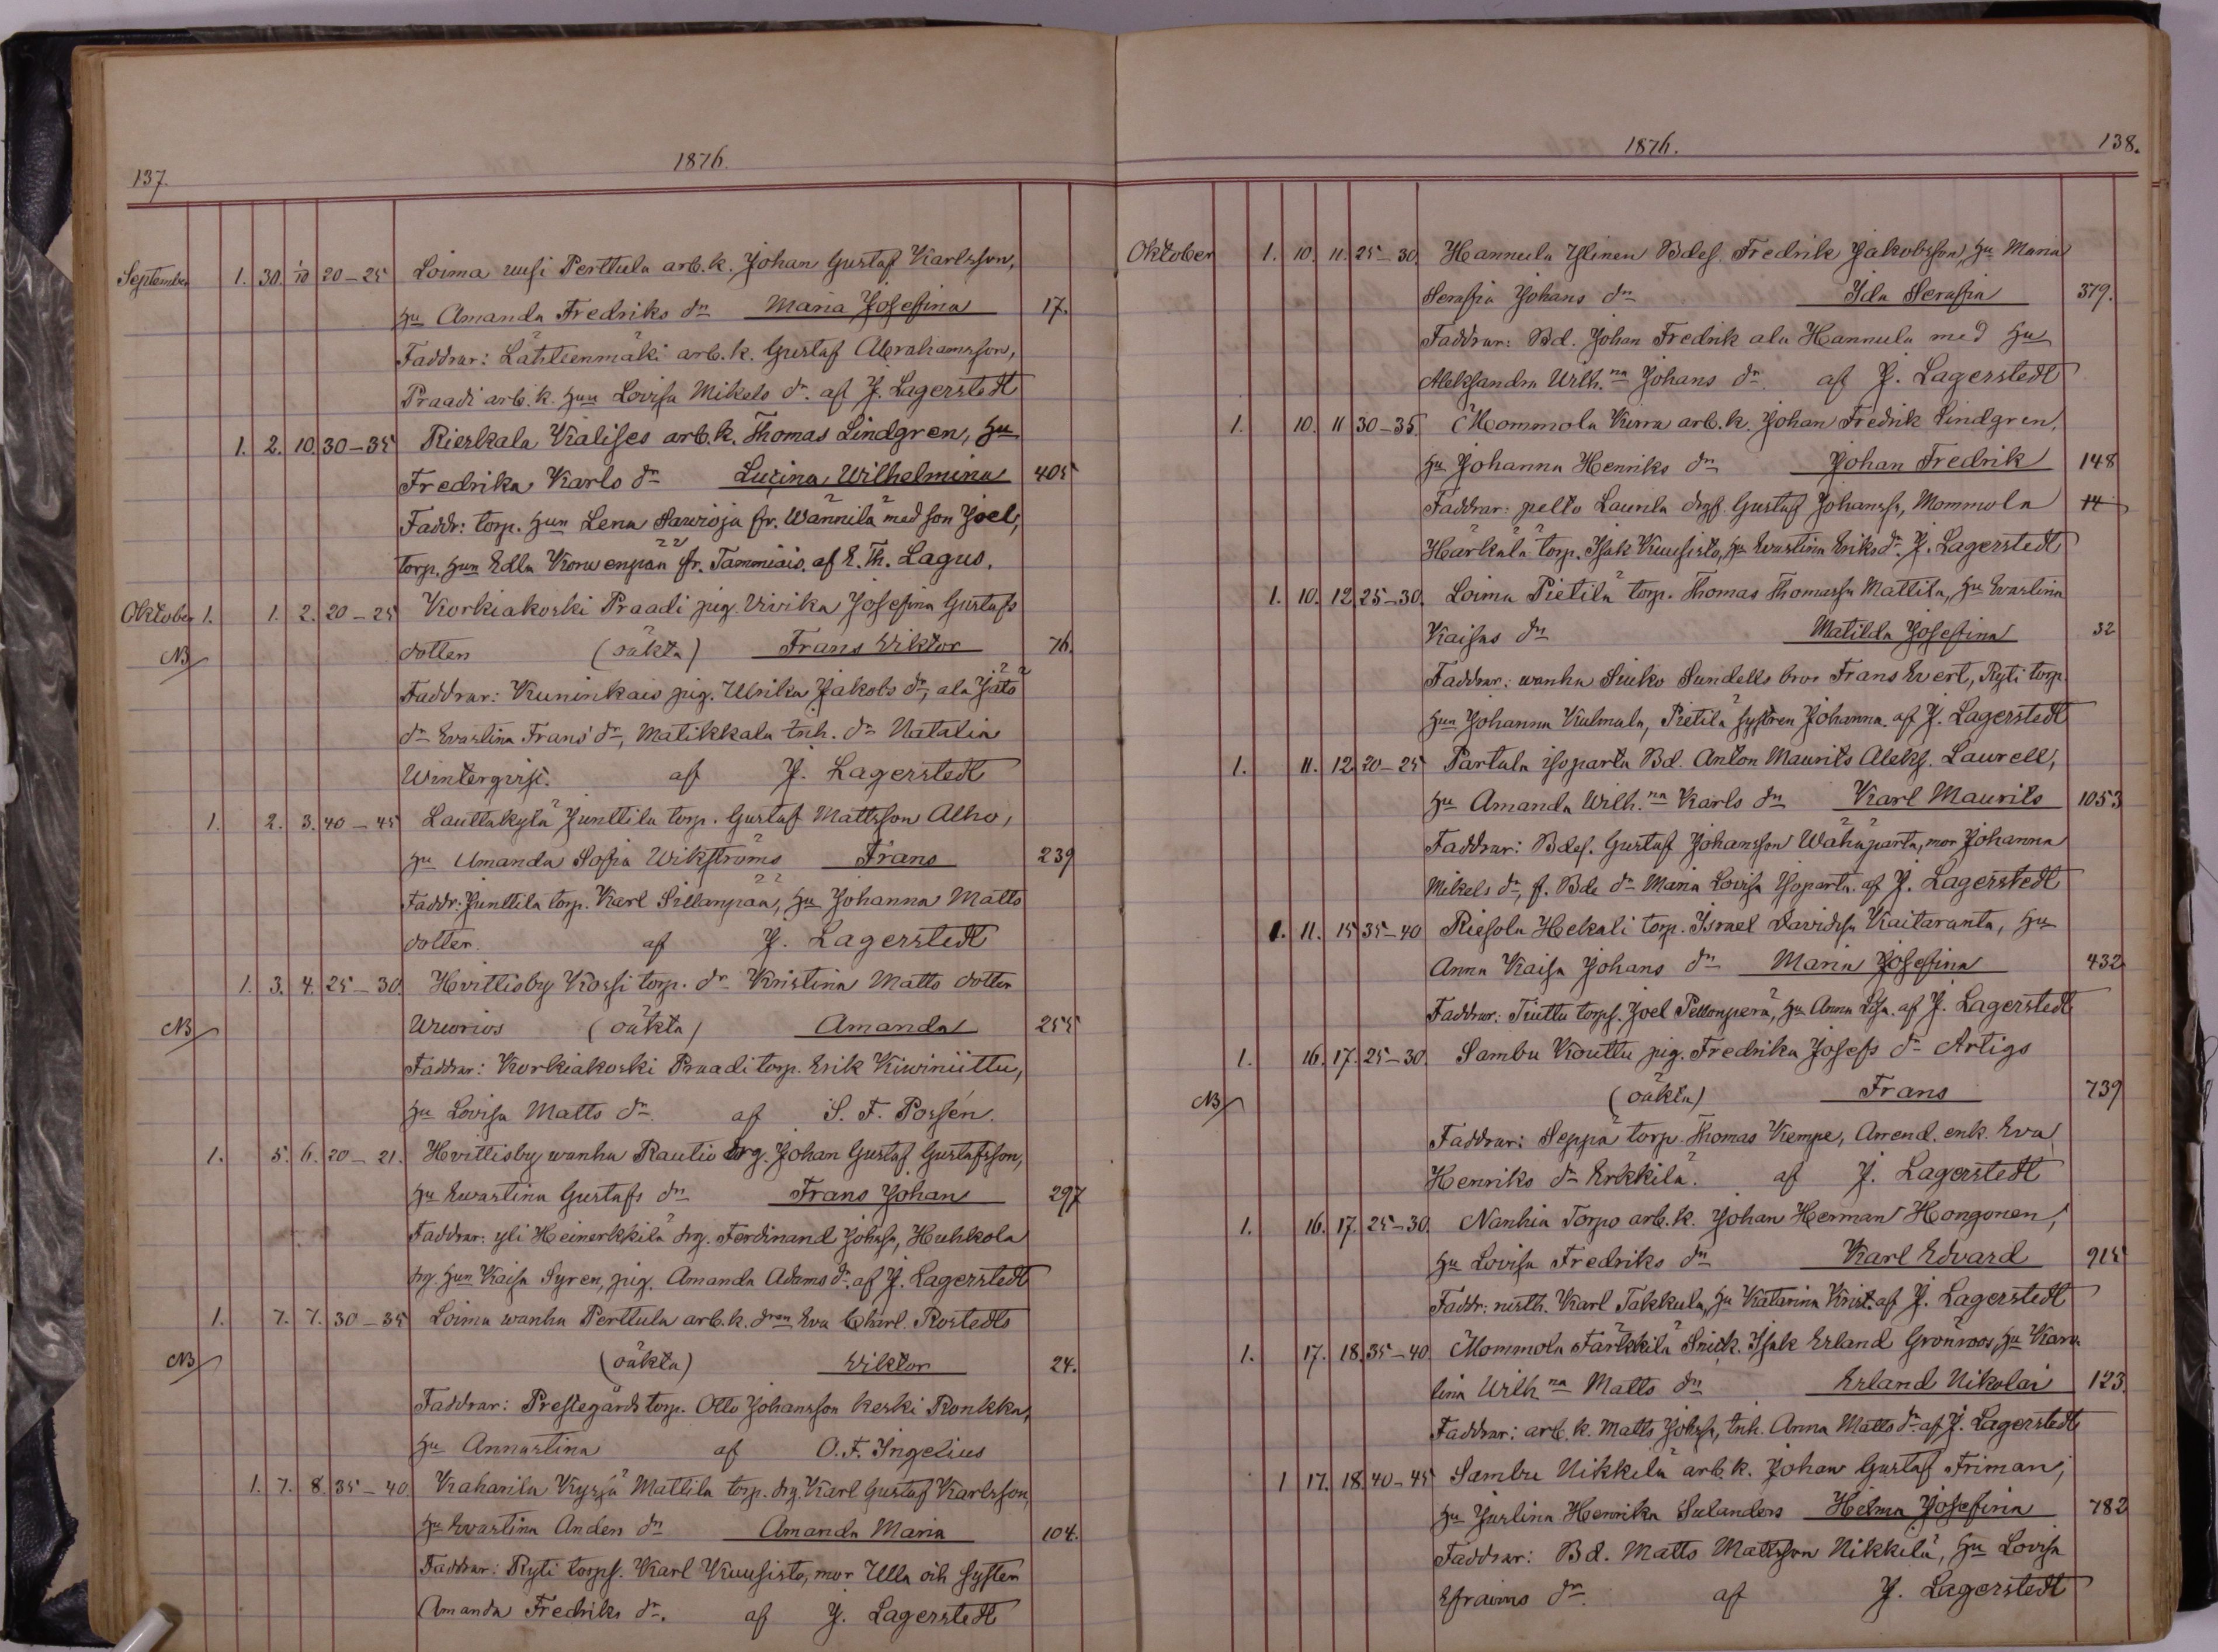 137.
1876.
September 1. 30. 1/10 20–25 Loima uusi Perttula arb.k. Johan Gustaf Karlsson,
hu Amanda Fredriks dr Maria Josefina 17.
Faddrar: Lähteenmäki arb.k. Gustaf Abrahamsson,
Praadi arb.k. hun Lovisa Mikels dr. af J. Lagerstedt
1. 2. 10. 30–35 Rieskala Kalises arb.k. Thomas Lindgren, hu
Fredrika Karls dr Lucina Wilhelmina 405
Faddr: torp. hun Lena Sawioja fr. Wännilä med son Joel,
torp. hun Edla Korwenpää fr. Tammiais. af E. Th. Lagus.
Oktober 1. 1. 2. 20–25 Korkiakoski Praadi pig. Vivika Josefina Gustafs
NB dotten (oäkta) Frans Viktor 76.
Faddrar: Kuninkais pig. Ulrika Jakobs dr, ala Jäts
dr Evastina Frans dr, Matikkala tnh. dr Natalia
Winterqvist. af J. Lagerstedt
1. 2. 3. 40–45 Lauttakylä Junttila torp. Gustaf Mattsson Alho,
hu Amanda Sofia Wikströms Frans 239
Faddr: Junttila torp. Karl Sillanpää, hu Johanna Matts
dotter. af J. Lagerstedt
1. 3. 4. 25–30. Hvittisby Kossi torp. dr Kristina Matts dotter
NB Wuorios (oäkta) Amanda 255
Faddrar: Korkiakoski Praadi torp. Erik Kiwiniittu,
hu Lovisa Matts dr. af S. F. Porsén.
1. 5. 6. 20–21. Hvittisby wanha Rautio drg. Johan Gustaf Gustafsson,
hu Evastina Gustafs dr Frans Johan 297
Faddrar: yli Heinerkkilä drg. Ferdinand Johss, Huhkola
drg. hun Kaisa Syren, pig. Amanda Adams dr. af J. Lagerstedt
1. 7. 7. 30–35 Loima wanha Perttula arb.k. dren Eva Charl. Rostedts
NB (oäkta) Viktor 24.
Faddrar: Prestegårds torp. Otto Johansson keski Ronkka,
hu Annastina af O. F. Ingelius
1. 7. 8. 35–40. Kaharila Kyssä Mattila torp. drg. Karl Gustaf Karlsson,
hu Evastina Anders dr Amanda Maria 104.
Faddrar: Ryti torps. Karl Kuusisto, mor Ulla och syster
Amanda Fredriks dr. af J. Lagerstedt
1876.
138.
Oktober 1. 10. 11. 25–30. Hannula Ylinen Bdes. Fredrik Jakobsson, hu Maria
Serafia Johans dr Ida Serafia 379.
Faddrar: Bd. Johan Fredrik ala Hannula med hu
Aleksandra Wilh.na Johans dr. af J. Lagerstedt
1. 10. 11 30–35. Mommola Kurra arb.k. Johan Fredrik Lindgren,
hu Johanna Henriks dr Johan Fredrik 148
Faddrar: pelto Laurila drgs. Gustaf Johanss, Mommola 14
Härkälä torp. Isak Kuusisto, hu Evastina Eriks dr. J. Lagerstedt
1. 10. 12. 25–30. Loima Pietilä torp. Thomas Thomass Mattila, hu Evastina
Kaisas dr Matilda Josefina 32
Faddrar: wanha Siuko Sundells bror Frans Evert, Ryti torp.
hun Johanna Kulmala, Pietilä systren Johanna. af J. Lagerstedt
1. 11. 12. 20–25 Partala isoparta Bd. Anton Maurits Aleks. Laurell,
hu Amanda Wilh.na Karls dr Karl Maurits 1053
Faddrar: Bdes. Gustaf Johansson Wähäparta, mor Johanna
Mikels dr, f. Bde dr Maria Lovisa Isoparta. af J. Lagerstedt
1. 11. 15 35–40 Riesola Hekali torp. Israel Davidss Kaitaranta, hu
Anna Kaisa Johans dr Maria Josefina 432
Faddrar: Tiuttu torps. Joel Pellonperä, hu Anna Lisa. af J. Lagerstedt
1. 16. 17. 25–30. Sambu Kouttu pig. Fredrika Josefs dr Artigs
NB (oäkta) Frans 739
Faddrar: Seppä torp. Thomas Kempe, Arrend. enk. Eva
Henriks dr Erkkilä. af J. Lagerstedt
1. 16. 17. 25–30. Nanhia Torpo arb.k. Johan Herman Hongonen,
hu Lovisa Fredriks dr Karl Edvard 915
Faddr: nisth. Karl Takkula, hu Katarina Krist. af J. Lagerstedt
1. 17. 18. 35–40 Mommola Färkkilä Snick. Isak Erland Grönroos, hu Karo
lina Wilh.na Matts dr Erland Nikolai 123
Faddrar: arb.k. Matts Johss, tnh. Anna Matts dr. af J. Lagerstedt
1 17. 18. 40–45 Sambu Nikkilä arb.k. Johan Gustaf Friman,
hu Justina Henrika Sulanders Helma Josefina 782
Faddrar: Bd. Matts Mattsson Nikkilä, hu Lovisa
Efraims dr. af J. Lagerstedt